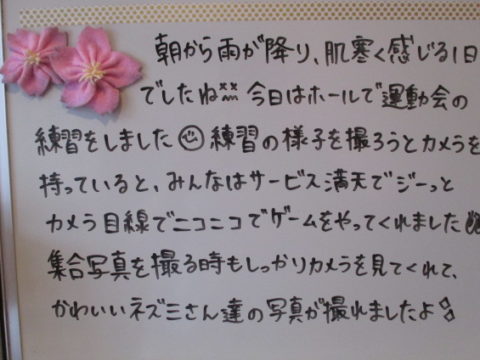 朝から雨が降り、肌寒く感じる1日
でしたね 今日はホールで運動会の
練習をしました 練習の様子を撮ろうとカメラを
持っていると、みんなはサービス満天でジーっと
カメラ目線でニコニコでゲームをやってくれました
集合写真を撮る時もしっかりカメラを見てくれて、
かわいいネズミさん達の写真が撮れましたよ